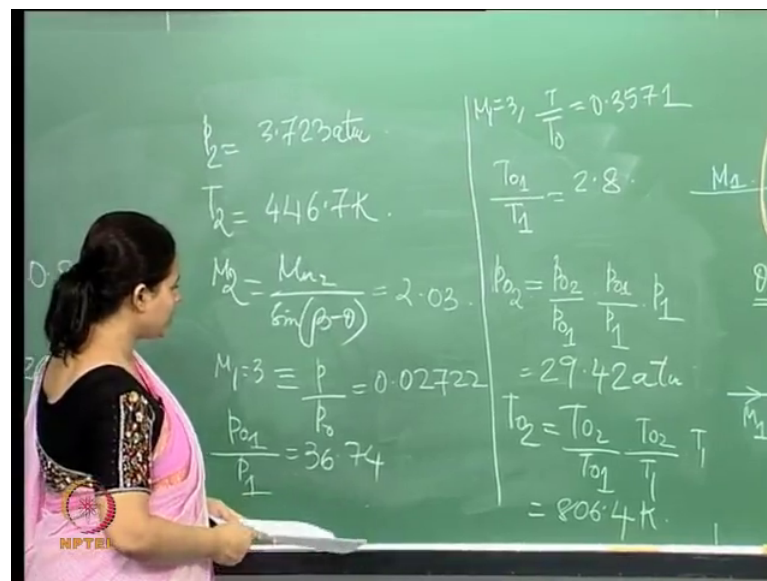 0.8
2
p₂ = 3.723 atm
T₂ = 446.7 K.
M₂ = Mn₂ / sin(β-θ) = 2.03.
M₁=3 ≡ p/p₀ = 0.02722
p₀₁/p₁ = 36.74
M₁=3, T/T₀ = 0.3571
T₀₁/T₁ = 2.8.
p₀₂ = p₀₂/p₀₁ · p₀₁/p₁ · p₁
= 29.42 atm
T₀₂ = T₀₂/T₀₁ T₀₂/T₁ T₁
= 806.4 K.
M₁.
θ
M₁
NPTEL